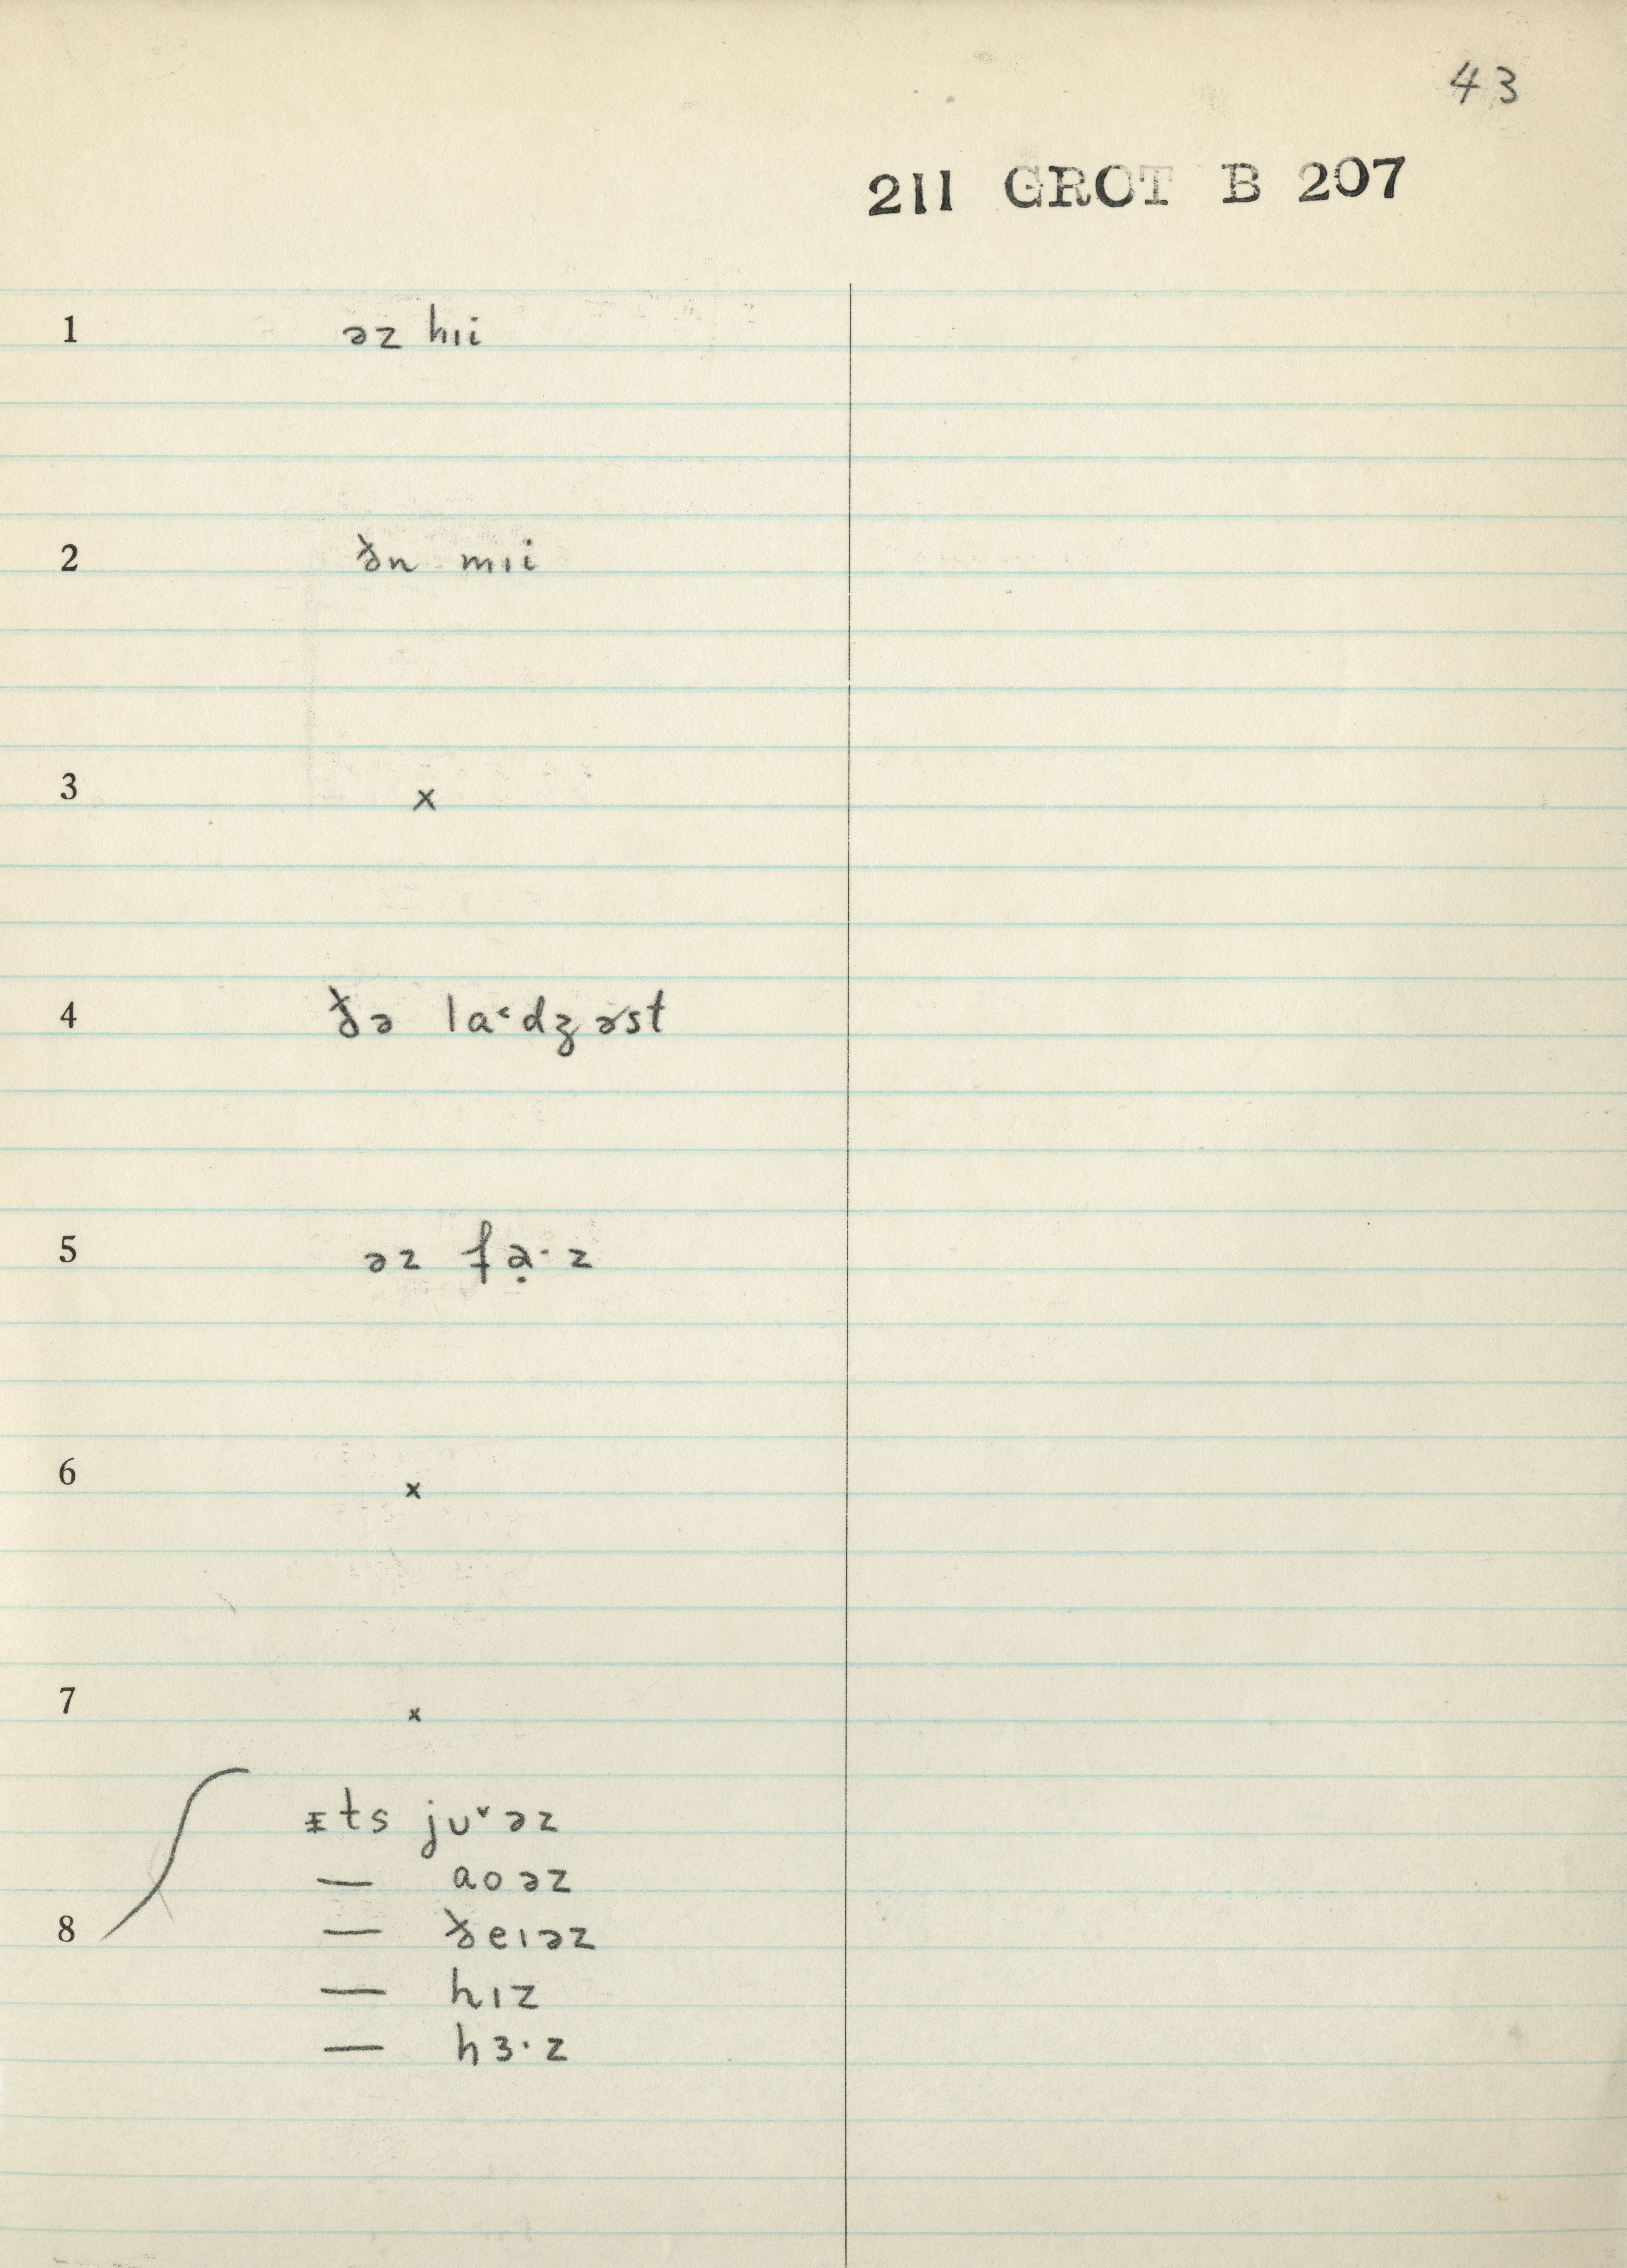 43
211 GROT B 207
1 əz hıi
2 ðn mıi
3 x
4 ðə la˂dʒəst
5 əz fə̣·z
6 x
7 x
ɪts ju˅əz
— aoəz
8 — ðeıəz
— hız
— hɜ·z